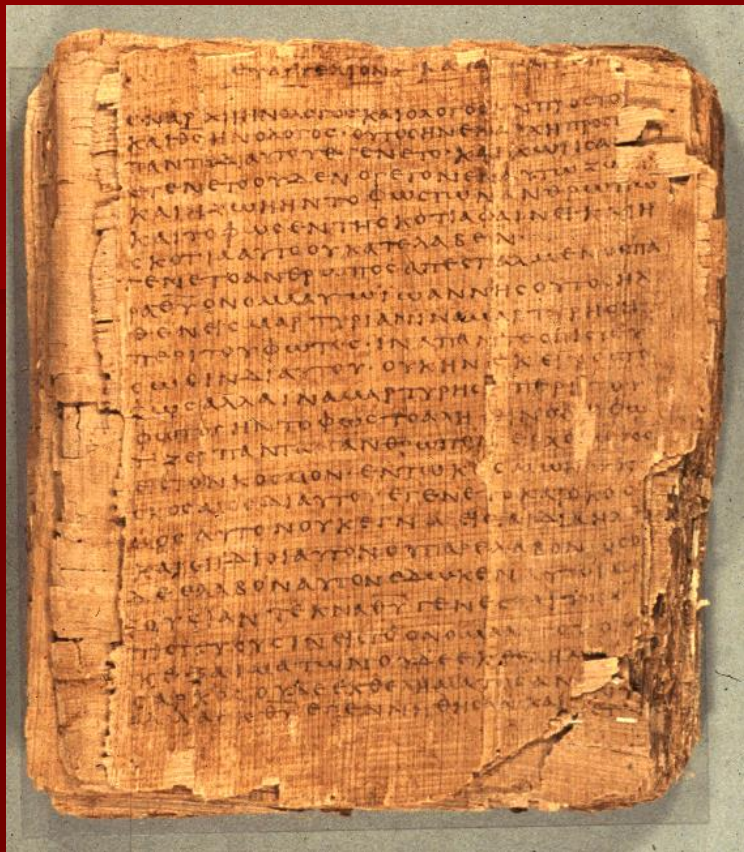 ΕΥΑΓΓΕΛΙΟΝ ΚΑΤΑ
ΕΝΑΡΧΗΗΝΟΛΟΓΟϹΚΑΙΟΛΟΓΟϹΗΝΠΡΟϹΤΟ
ΚΑΙΘ̅Ϲ̅ΗΝΟΛΟΓΟϹ·ΟΥΤΟϹΗΝΕΝΑΡΧΗΠΡΟϹ
ΠΑΝΤΑΔΙΑΥΤΟΥΕΓΕΝΕΤΟ·ΚΑΙΧΩΡΙϹΑ
ΕΓΕΝΕΤΟΟΥΔΕΝΟΓΕΓΟΝΕΝΕΝΑΥΤΩΖΩ
ΚΑΙΗΖΩΗΗΝΤΟΦΩϹΤΩΝΑΝΘΡΩΠΩ
ΚΑΙΤΟΦΩϹΕΝΤΗϹΚΟΤΙΑΦΑΙΝΕΙ·ΚΑΙΗ
ϹΚΟΤΙΑΑΥΤΟΟΥΚΑΤΕΛΑΒΕΝ·
ΕΓΕΝΕΤΟΑΝΘΡΩΠΟϹΑΠΕϹΤΑΛΜΕΝΟϹΠΑ
ΡΑΘ̅Υ̅ΟΝΟΜΑΑΥΤΩΙΩΑΝΝΗϹΟΥΤΟϹΗΛ
ΘΕΝΕΙϹΜΑΡΤΥΡΙΑΝΙΝΑΜΑΡΤΥΡΗϹΗ
ΠΕΡΙΤΟΥΦΩΤΟϹ·ΙΝΑΠΑΝΤΕϹΠΙϹΤΕΥ
ϹΩϹΙΝΔΙΑΥΤΟΥ·ΟΥΚΗΝΕΚΕΙΝΟϹΤΟ
ΦΩϹΑΛΛΑΙΝΑΜΑΡΤΥΡΗϹΗΠΕΡΙΤΟΥ
ΦΩΤΟϹΗΝΤΟΦΩϹΤΟΑΛΗΘΙΝΟΝΟΦΩ
ΤΙΖΕΙΠΑΝΤΑΑΝΘΡΩΠΟΝΕΡΧΟΜΕΝΟΝ
ΕΙϹΤΟΝΚΟϹΜΟΝ·ΕΝΤΩΚΟϹΜΩΗΝΚΑΙΟ
ΚΟϹΜΟϹΔΙΑΥΤΟΥΕΓΕΝΕΤΟΚΑΙΟΚΟϹ
ΜΟϹΑΥΤΟΝΟΥΚΕΓΝΩΕΙϹΤΑΙΔΙΑΗΛ
ΚΑΙΟΙΙΔΙΟΙΑΥΤΟΝΟΥΠΑΡΕΛΑΒΟΝ·ΟϹΟΙ
ΔΕΕΛΑΒΟΝΑΥΤΟΝΕΔΩΚΕΝΑΥΤΟΙϹΕ
ΞΟΥϹΙΑΝΤΕΚΝΑΘ̅Υ̅ΓΕΝΕϹΘΑΙΤΟΙϹ
ΠΙϹΤΕΥΟΥϹΙΝΕΙϹΤΟΟΝΟΜΑ
ΚΕΞΑΙΜΑΤΩΝΟΥΔΕΕΚΘΕΛΗΜΑ
ϹΑΡΚΟϹΟΥΔΕΕΚΘΕΛΗΜΑΤΟϹΑΝ
ΑΛΛΑΕΚΘ̅Υ̅ΕΓΕΝΝΗΘΗϹΑΝΚΑΙ